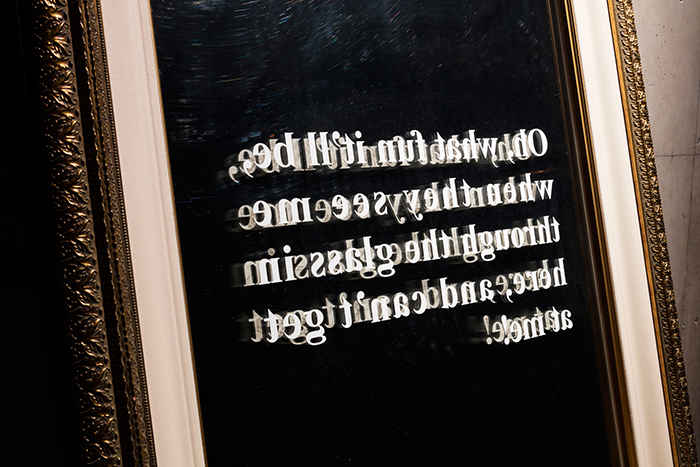 Oh, what fun it'll be,
when they see me
through the glass in
here, and can't get
at me!